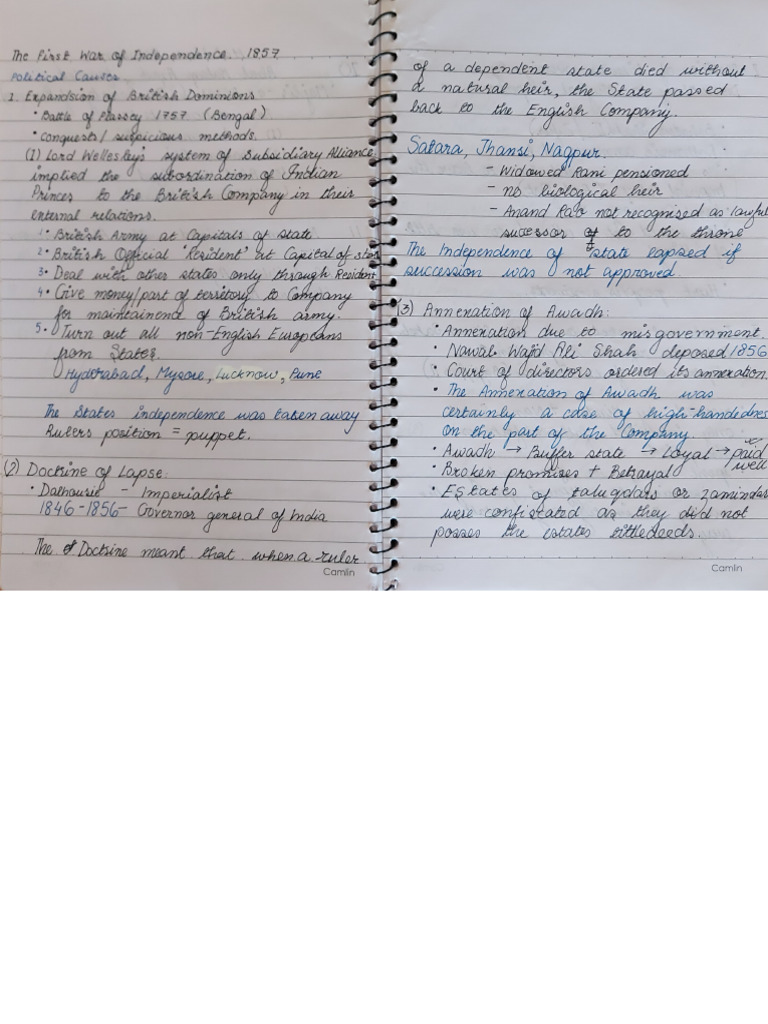 The First War of Independence 1857
Political Causes
1. Expandsion of British Dominions
• Battle of Plassey 1757 (Bengal)
• Conquests/ suspicious methods.
(1) Lord Wellesley's system of Subsidiary Alliance
implied the subordination of Indian
Princes to the British Company in their
external relations.
1• British Army at Capitals of state
2• British Official 'Resident' at Capital of state
3• Deal with other states only through Resident
4• Give money/part of territory to Company
for maintainence of British army.
5• Turn out all non-English Europeans
from States.
Hyderabad, Mysore, Lucknow, Pune
The States independence was taken away
Rulers position = puppet.
(2) Doctrine of Lapse:
• Dalhousie - Imperialist
1846-1856- Governor general of India
The Doctrine meant that when a ruler
Camlin
of a dependent state died without
a natural heir, the State passed
back to the English Company.
Satara, Jhansi, Nagpur.
- Widowed Rani pensioned
- no biological heir
- Anand Rao not recognised as lawful
successor to the throne
The Independence of state lapsed if
succession was not approved
(3) Annexation of Awadh:
• Annexation due to misgovernment.
• Nawab Wajid Ali Shah deposed 1856
• Court of directors ordered its annexation.
• The Annexation of Awadh was
certainly a case of high-handedness
on the part of the Company
• Awadh → Buffer state → Loyal → paid
well
• Broken promises + Betrayal
• Estates of taluqdars or zamindars
were confiscated as they did not
posses the estates tittledeeds.
Camlin